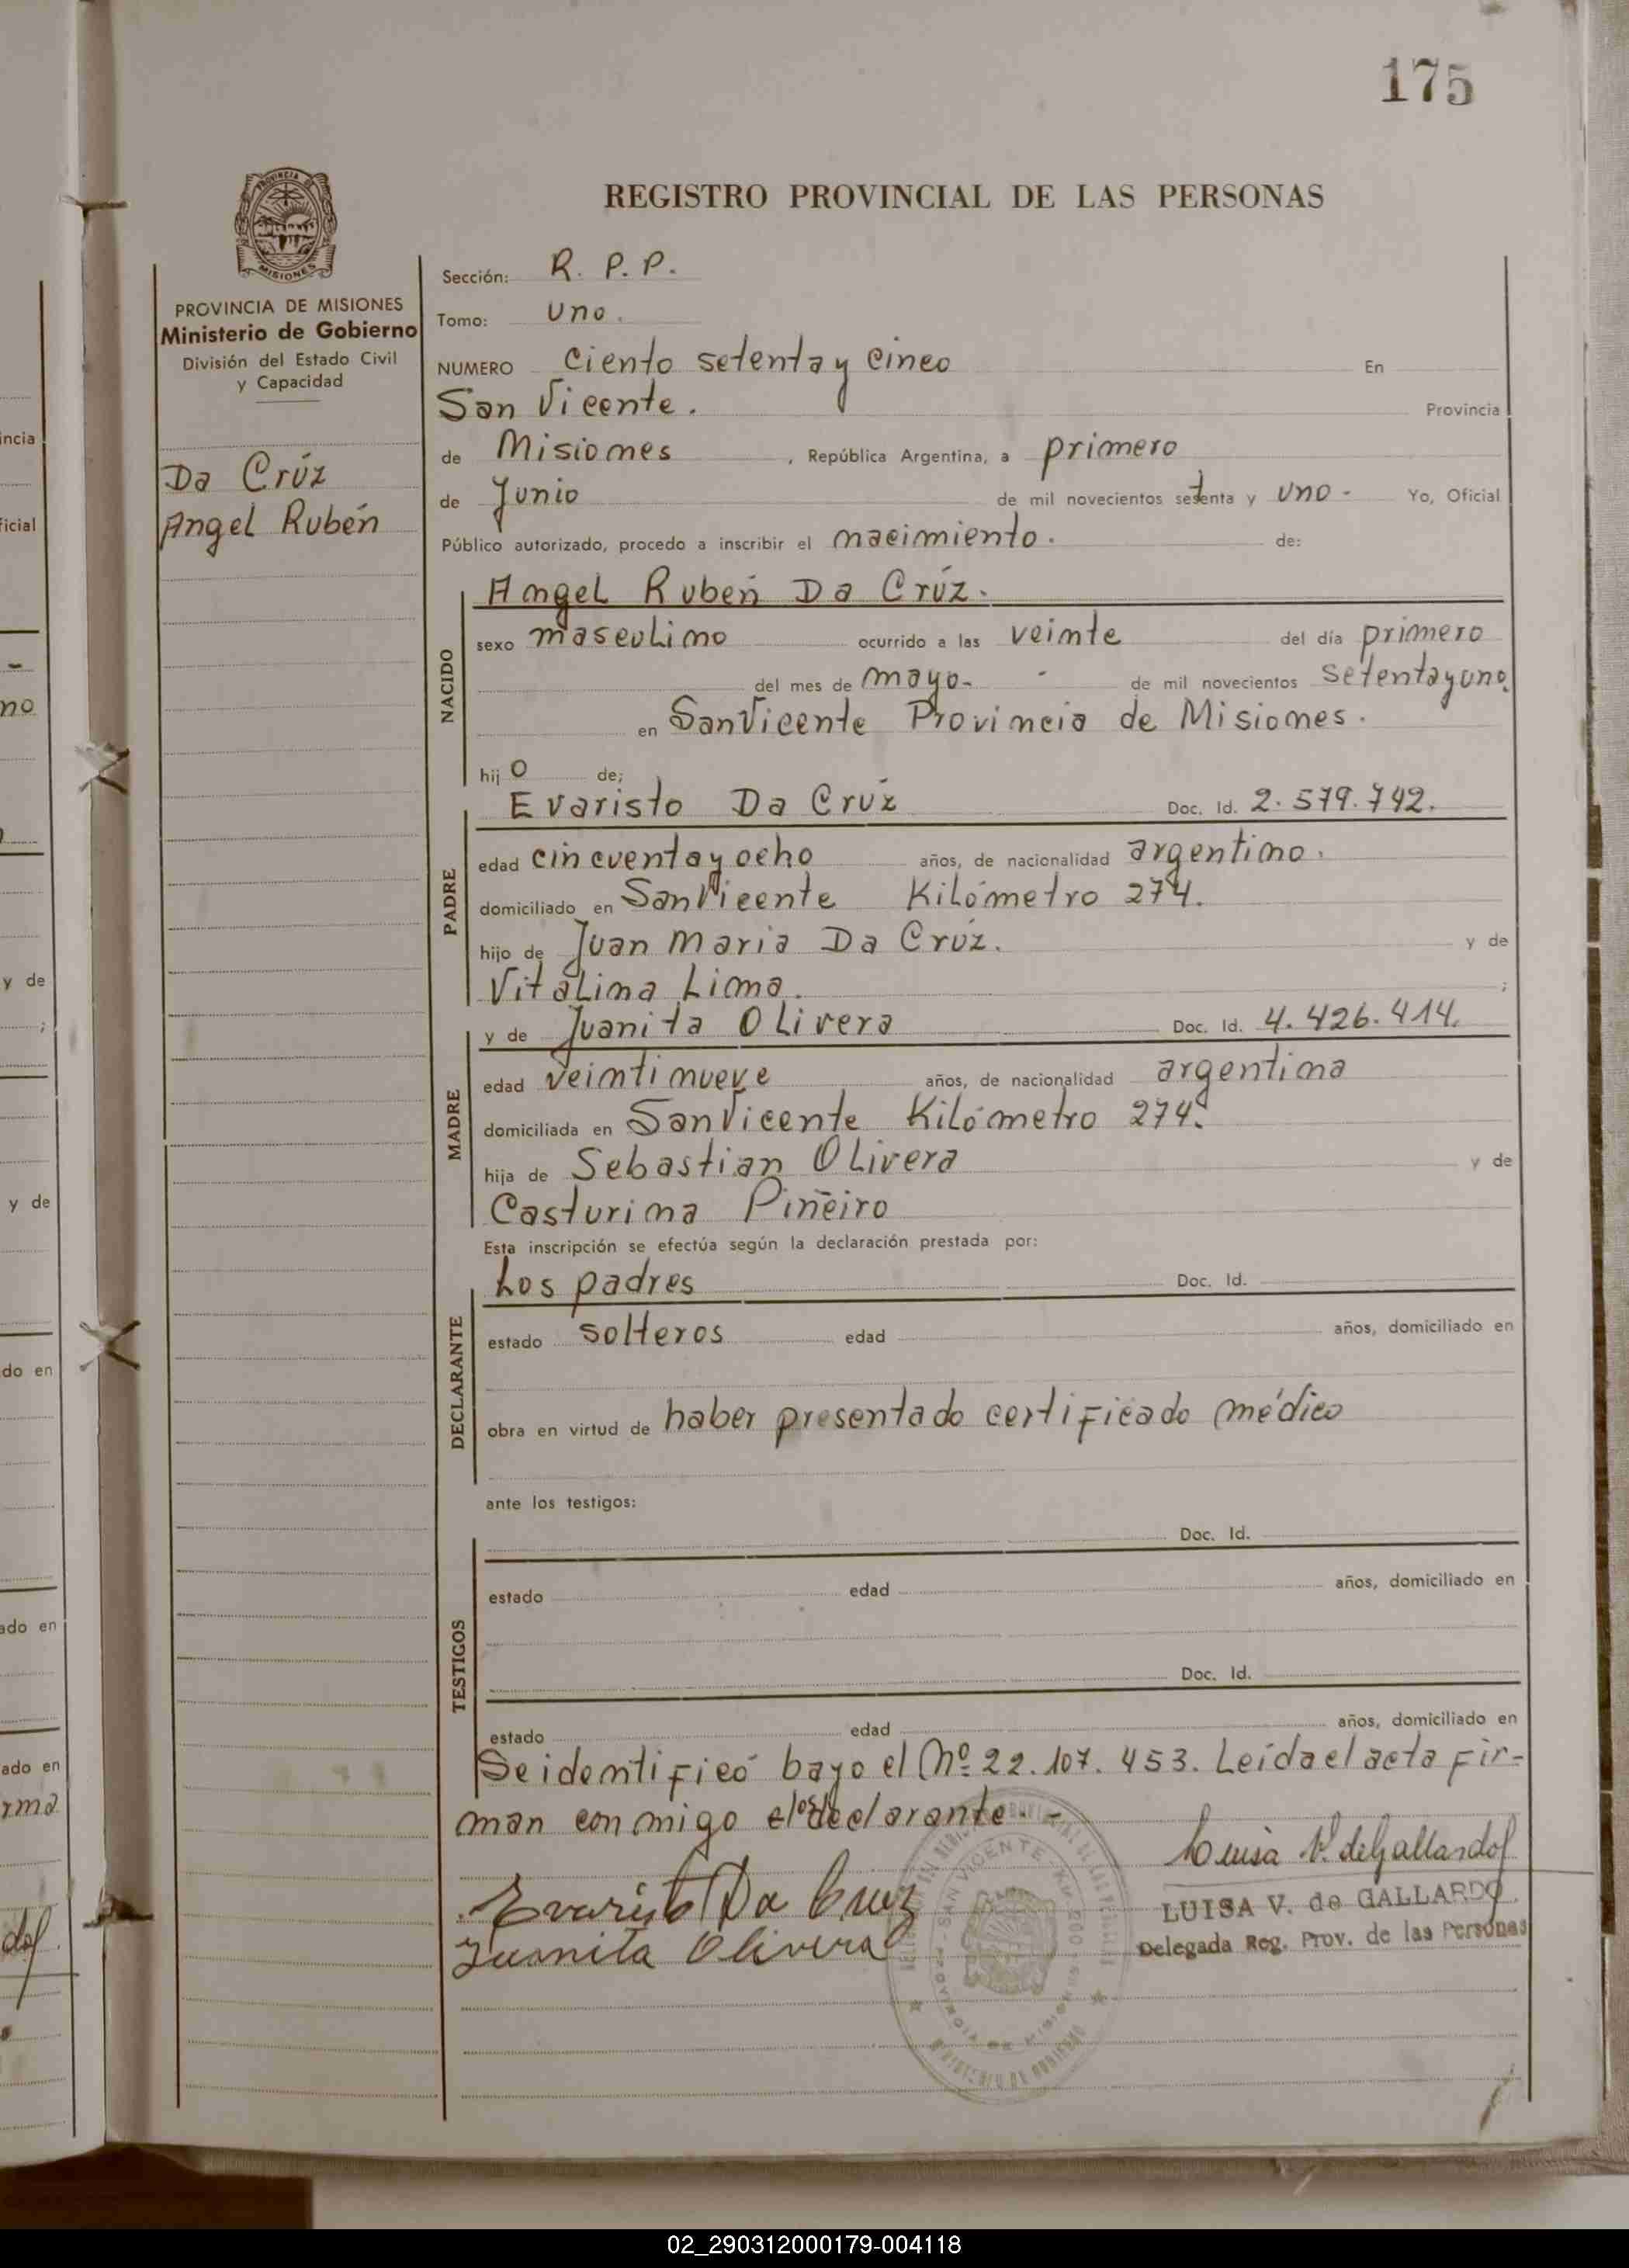 175
REGISTRO PROVINCIAL DE LAS PERSONAS
PROVINCIA DE MISIONES
Ministerio de Gobierno
División del Estado Civil
y Capacidad
Da Crúz
Angel Rubén
Sección: R. P. P.
Tomo: Uno.
NUMERO Ciento setenta y cinco En
San Vicente. Provincia
de Misiones, República Argentina, a primero
de Junio de mil novecientos setenta y uno - Yo, Oficial
Público autorizado, procedo a inscribir el nacimiento. de:
NACIDO
Angel Rubén Da Crúz.
sexo masculino ocurrido a las veinte del día primero
del mes de mayo- de mil novecientos setenta y uno.
en San Vicente Provincia de Misiones.
hijo de;
PADRE
Evaristo Da Crúz Doc. Id. 2.579.742.
edad cincuenta y ocho años, de nacionalidad argentino.
domiciliado en San Vicente Kilómetro 274.
hijo de Juan Maria Da Crúz. y de
Vitalina Lima. ;
MADRE
y de Juanita Olivera Doc. Id. 4.426.414.
edad veintinueve años, de nacionalidad argentina
domiciliada en San Vicente Kilómetro 274.
hija de Sebastian Olivera y de
Casturina Piñeiro
Esta inscripción se efectúa según la declaración prestada por:
DECLARANTE
Los padres Doc. Id.
estado solteros edad años, domiciliado en
obra en virtud de haber presentado certificado médico
ante los testigos:
TESTIGOS
Doc. Id.
estado edad años, domiciliado en
Doc. Id.
estado edad años, domiciliado en
Se identificó bayo el Nº 22.107.453. Leída el acta fir-
man conmigo el los declarante. -
Evaristo Da Cruz
Juanita Olivera
Luisa V. de Gallardo
LUISA V. de GALLARDO
Delegada Reg. Prov. de las Personas
SAN VICENTE
MINISTERIO DE GOBIERNO
02_290312000179-004118